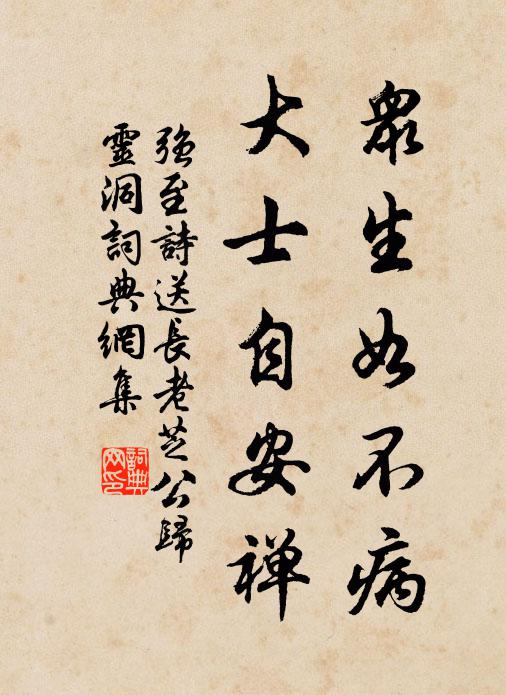 眾生如不病
大士自安禅
強至詩送長老芝公歸
靈洞詞典網集
詞典
网印